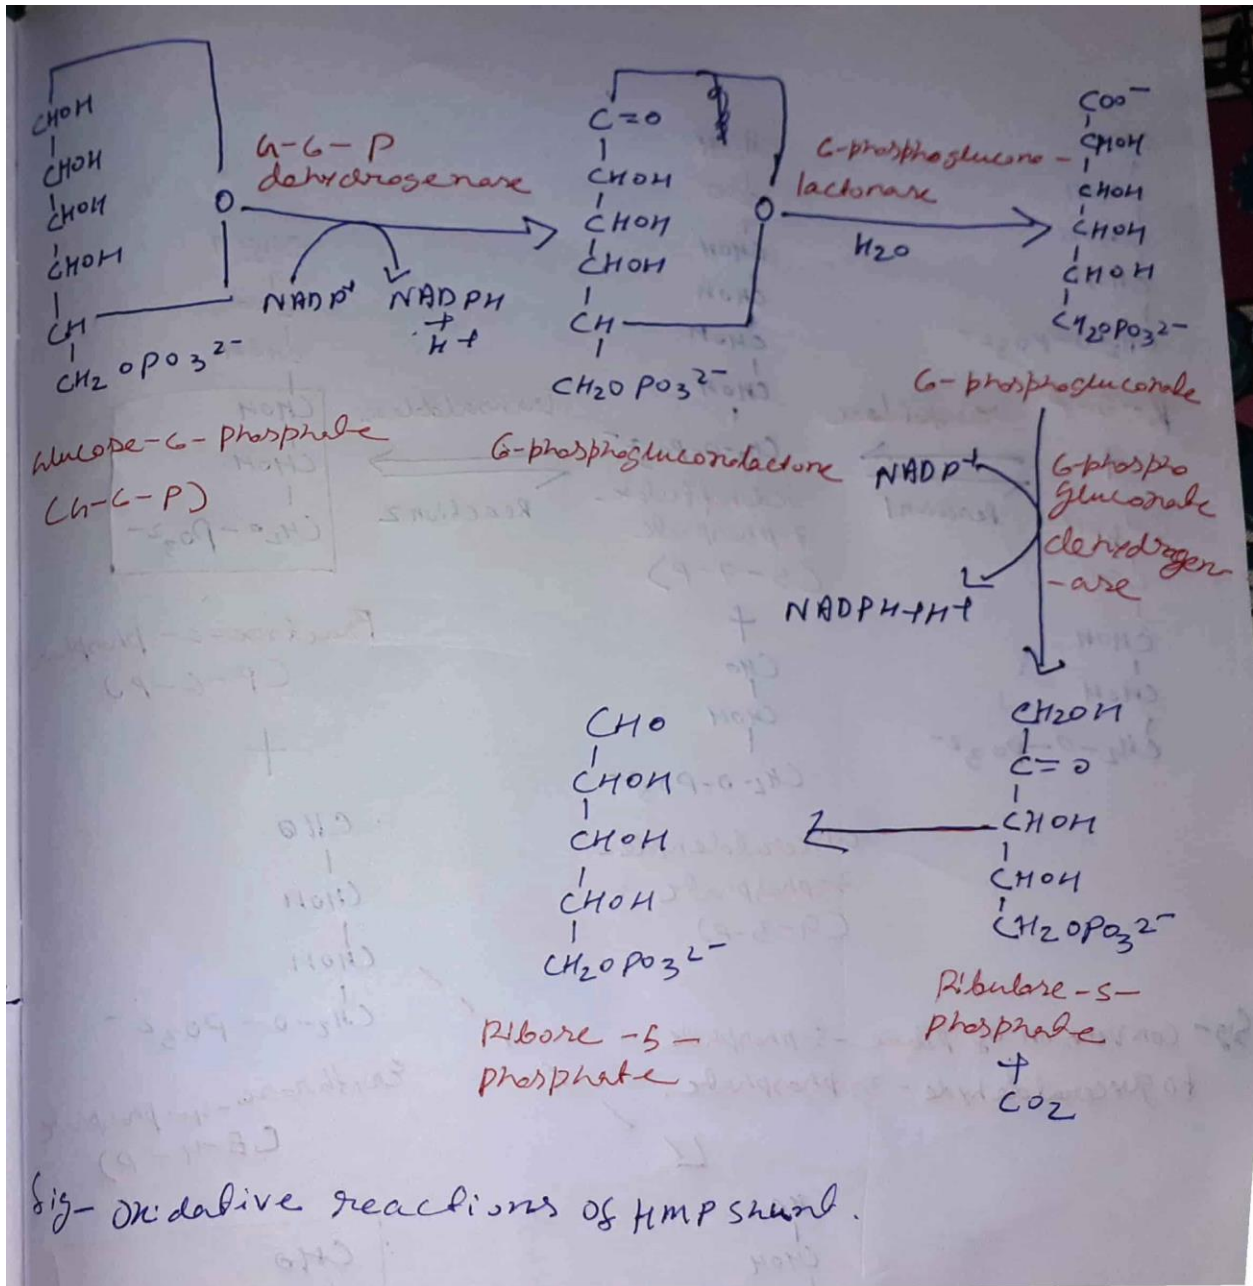 CHOH
CHOH
CHOH
CHOH
CH
CH2 OPO3 2-
O
Glucose-6-phosphate
(G-6-P)
G-6-P
dehydrogenase
NADP+ NADPH
+
H+
C=O
CHOH
CHOH
CHOH
CH
CH2O PO3 2-
O
6-phosphogluconolactone
6-phosphoglucono-
lactonase
H2O
COO-
CHOH
CHOH
CHOH
CHOH
CH2OPO3 2-
6-phosphogluconate
NADP+
NADPH+H+
6-phospho
gluconate
dehydrogen
-ase
CH2OH
C=O
CHOH
CHOH
CH2OPO3 2-
Ribulose-5-
phosphate
+
CO2
CHO
CHOH
CHOH
CHOH
CH2OPO3 2-
Ribose-5-
phosphate
fig- Oxidative reactions of HMP shunt.